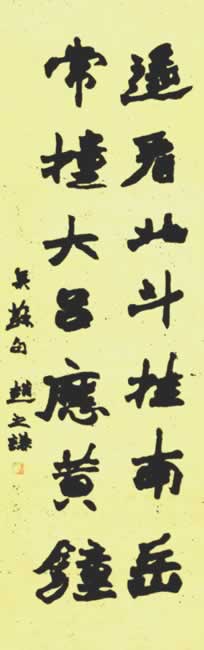 遙看北斗挂南岳
常撞大吕應黄鐘
蘇句 趙之謙